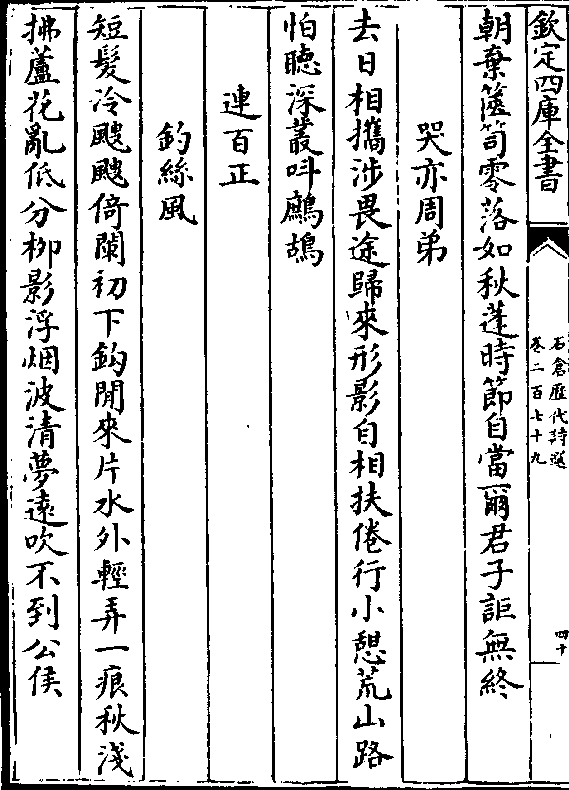 欽定四庫全書
石倉歷代詩選
卷二百七十九
四十
朝棄篋笥零落如秋蓬時節自當爾君子詎無終
哭亦周弟
去日相攜涉畏途歸來形影自相扶倦行小憩荒山路
怕聽深叢叫鷓鴣
連百正
釣絲風
短髮冷颼颼倚闌初下鈎閒來片水外輕弄一痕秋淺
拂蘆花亂低分柳影浮烟波清夢遠吹不到公侯